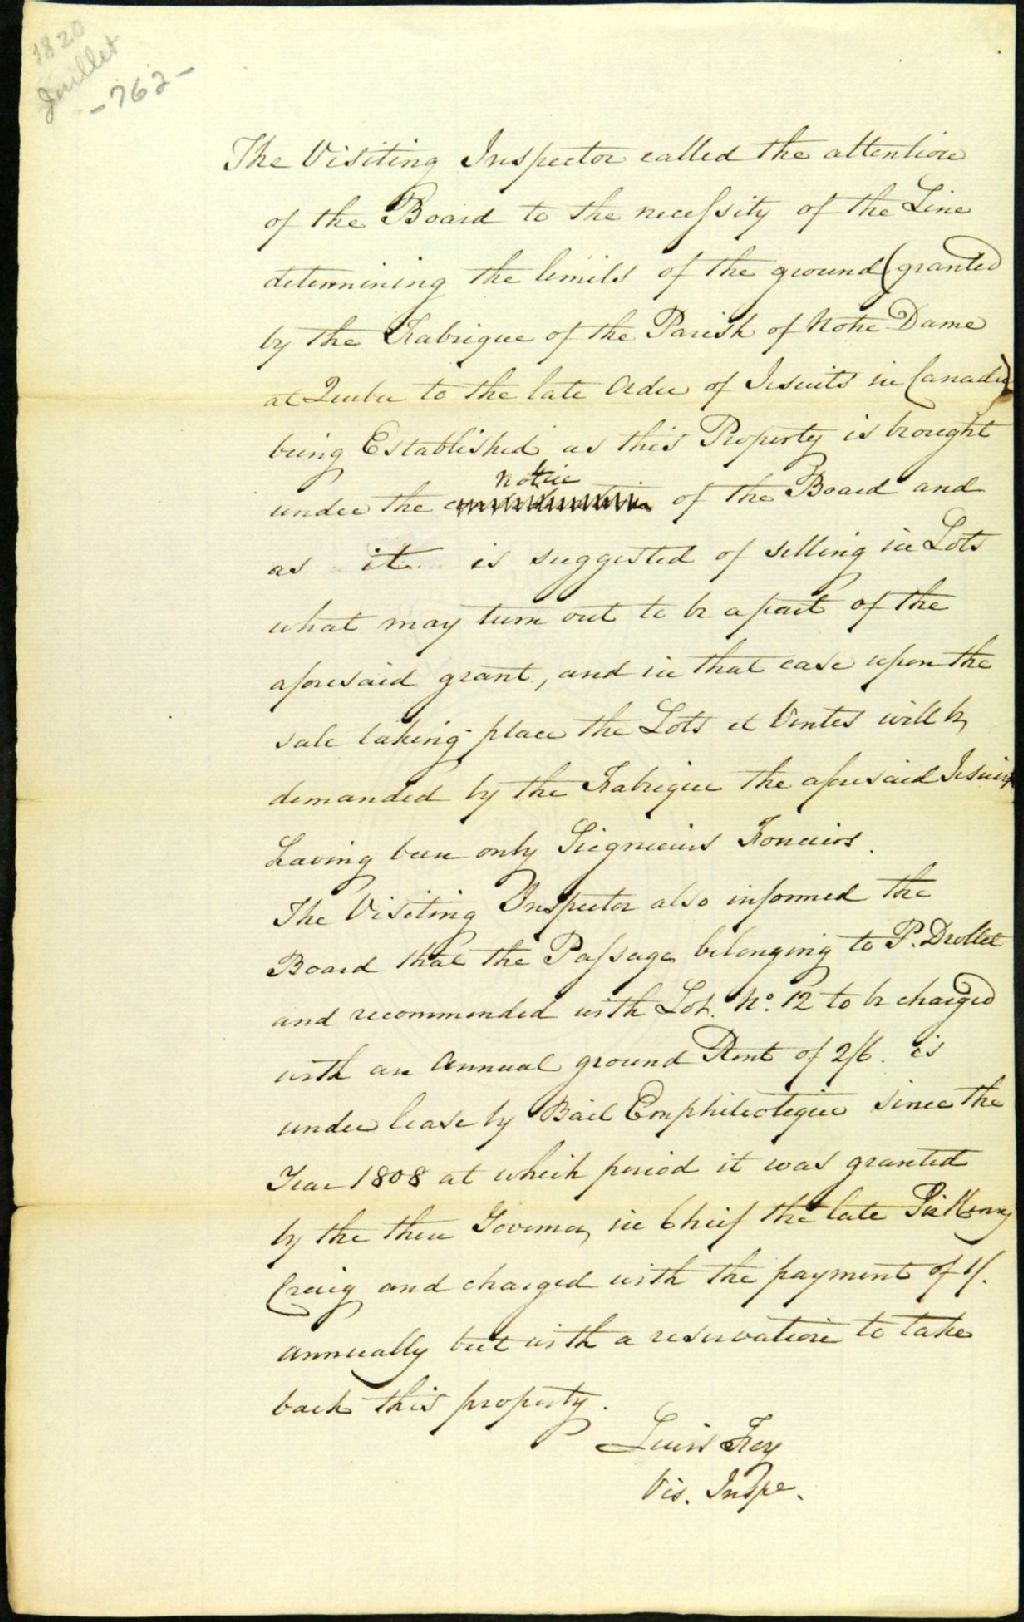 1820
Juillet
-762-
The Visiting Inspector called the attention
of the Board to the necessity of the Line
determining the limits of the ground (granted
by the Fabrique of the Parish of Notre Dame
at Quebec to the late Order of Jesuits in Canada)
being Established as this Property is brought
notice
under the of the Board and
as it is suggested of selling in Lots
what may turn out to be a part of the
aforesaid grant, and in that case upon the
sale taking place the Lots et Ventes will be
demanded by the Fabrique the aforesaid Jesuits
having been only Seigneurs Fonciers.
The Visiting Inspector also informed the
Board that the Passage belonging to P. Drolet
and recommended with Lot. No. 12 to be charged
with an Annual ground Rent of 2/6. is
under lease by Bail Emphiteotique since the
Year 1808 at which period it was granted
by the then Governor, in Chief the late Sir Henry
Craig and charged with the payment of 1/.
annually but with a reservation to take
back this property.
Louis Foy
Vis. Inspr.